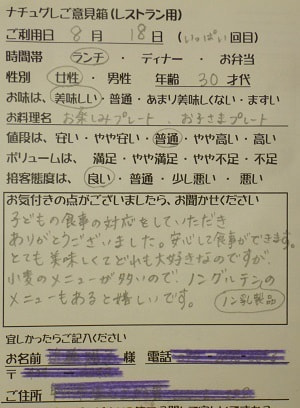 ナチュグレご意見箱(レストラン用)
ご利用日 8月 18日(いっぱい回目)
時間帯 ランチ・ディナー・お弁当
性別 女性・男性 年齢 30才代
お味は、美味しい・普通・あまり美味しくない・まずい
お料理名 お楽しみプレート、お子さまプレート
値段は、安い・やや安い・普通・やや高い・高い
ボリュームは、満足・やや満足・やや不足・不足
接客態度は、良い・普通・少し悪い・悪い
お気付きの点がございましたら、お聞かせください
子どもの食事の対応をしていただき
ありがとうございました。安心して食事ができます。
とても美味しくてどれも大好きなのですが
小麦のメニューが多いので、ノングルテンの
メニューもあると嬉しいです。
ノン乳製品
宜しかったらご記入ください
お名前 様 電話
〒
ご住所